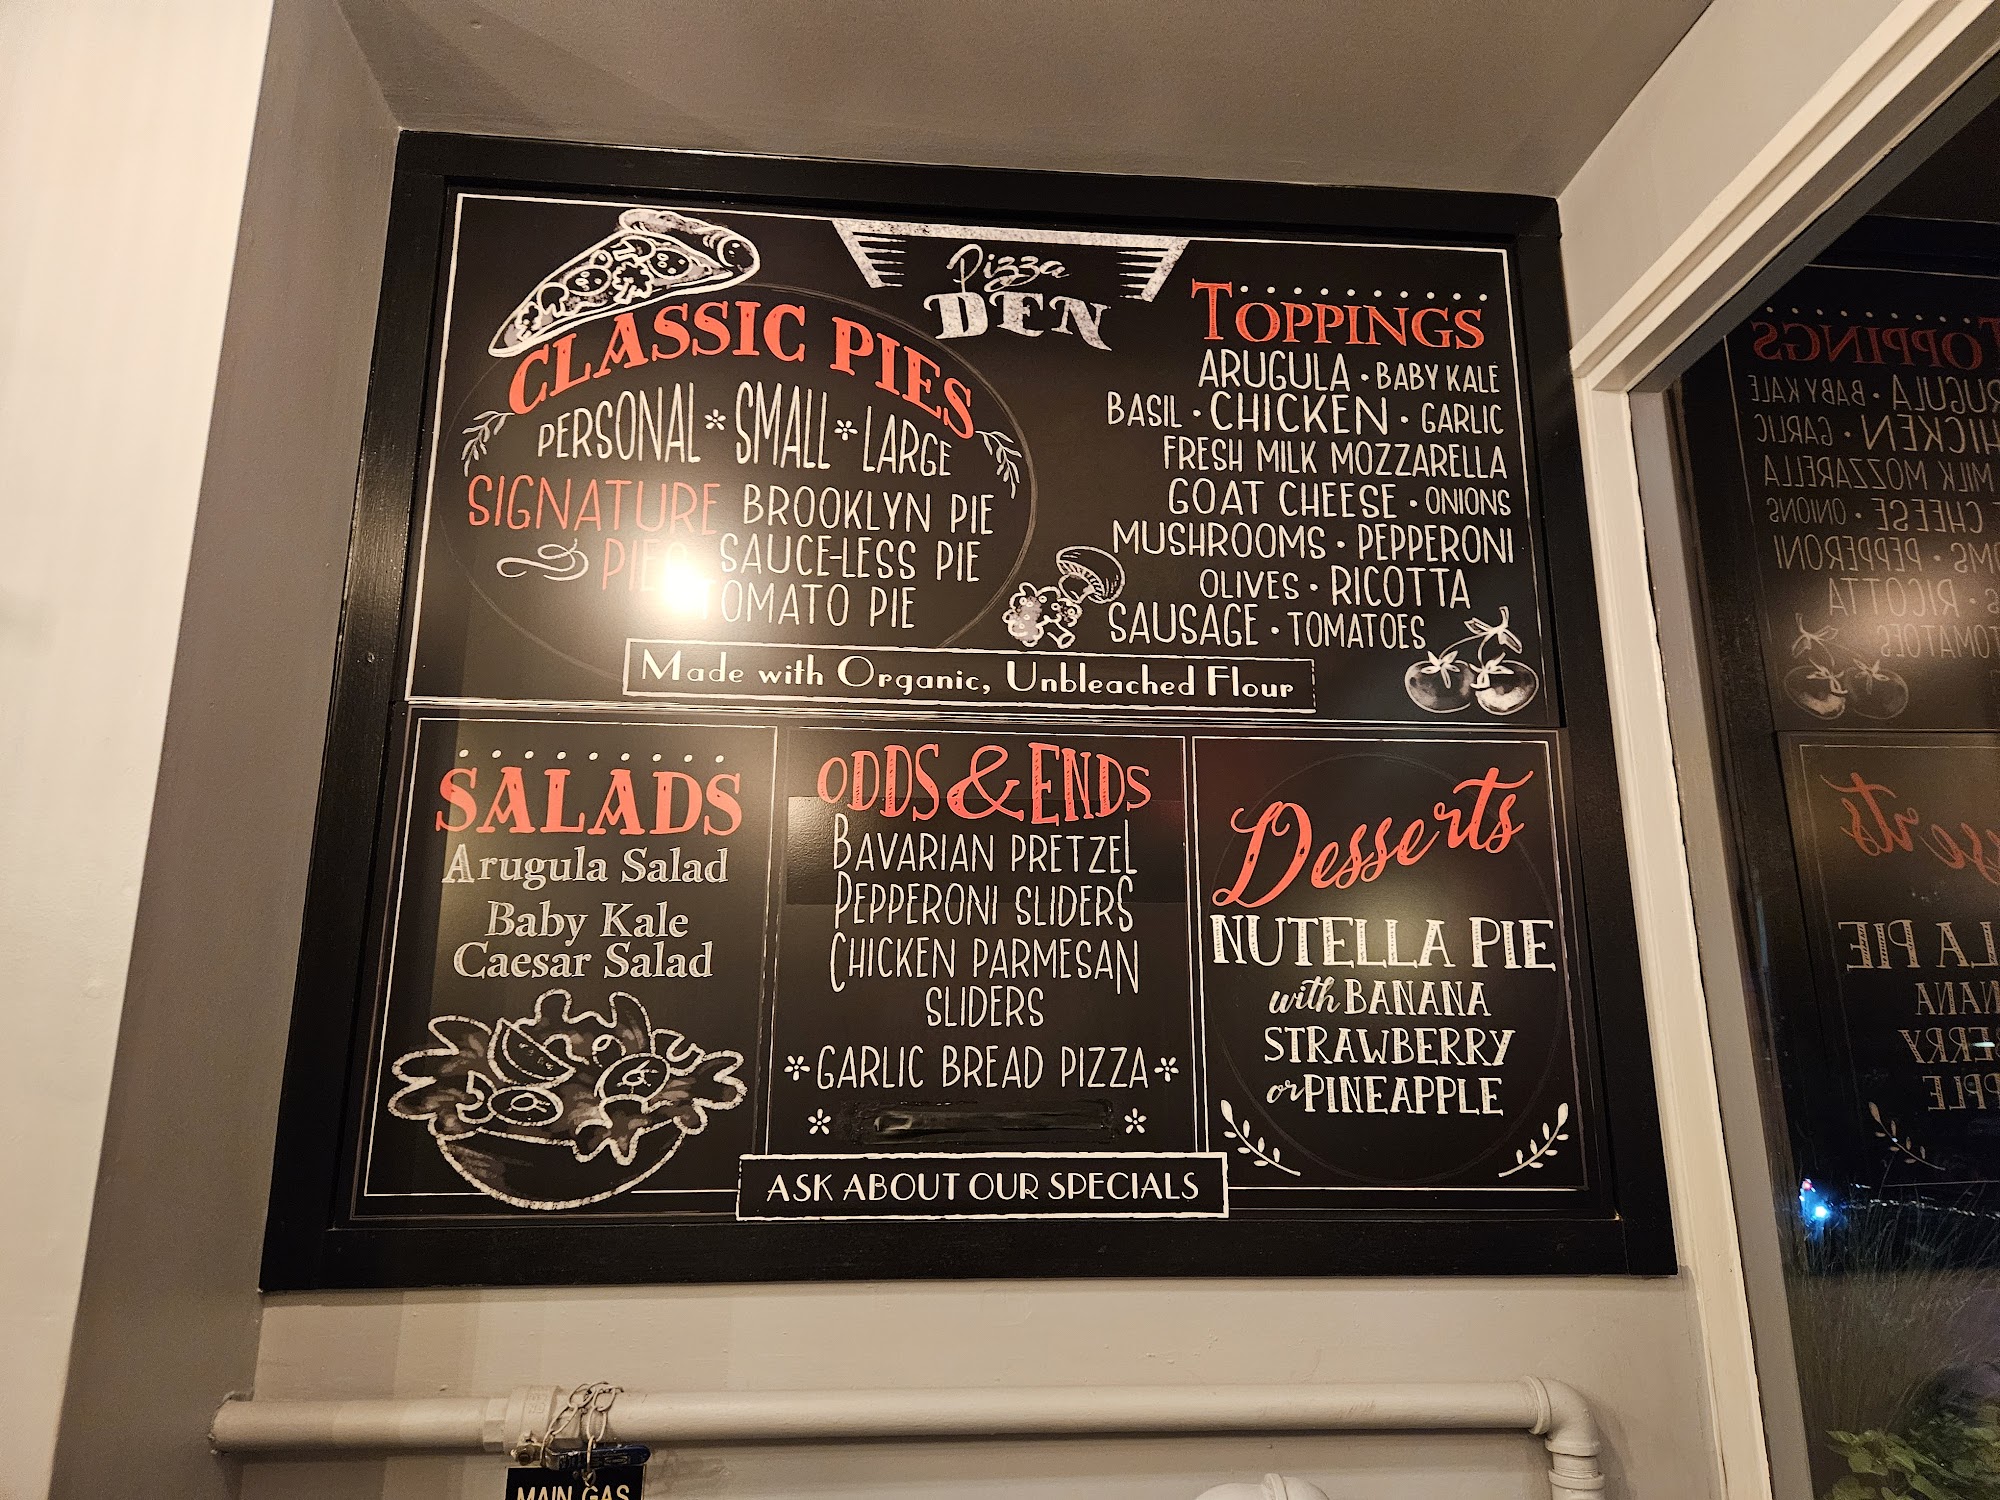 Pizza
DEN
CLASSIC PIES
PERSONAL * SMALL * LARGE
SIGNATURE
PIES
BROOKLYN PIE
SAUCE-LESS PIE
TOMATO PIE
TOPPINGS
ARUGULA • BABY KALE
BASIL • CHICKEN • GARLIC
FRESH MILK MOZZARELLA
GOAT CHEESE • ONIONS
MUSHROOMS • PEPPERONI
OLIVES • RICOTTA
SAUSAGE • TOMATOES
Made with Organic, Unbleached Flour
SALADS
Arugula Salad
Baby Kale
Caesar Salad
ODDS & ENDS
BAVARIAN PRETZEL
PEPPERONI SLIDERS
CHICKEN PARMESAN
SLIDERS
* GARLIC BREAD PIZZA *
ASK ABOUT OUR SPECIALS
Desserts
NUTELLA PIE
with BANANA
STRAWBERRY
or PINEAPPLE
MAIN GAS